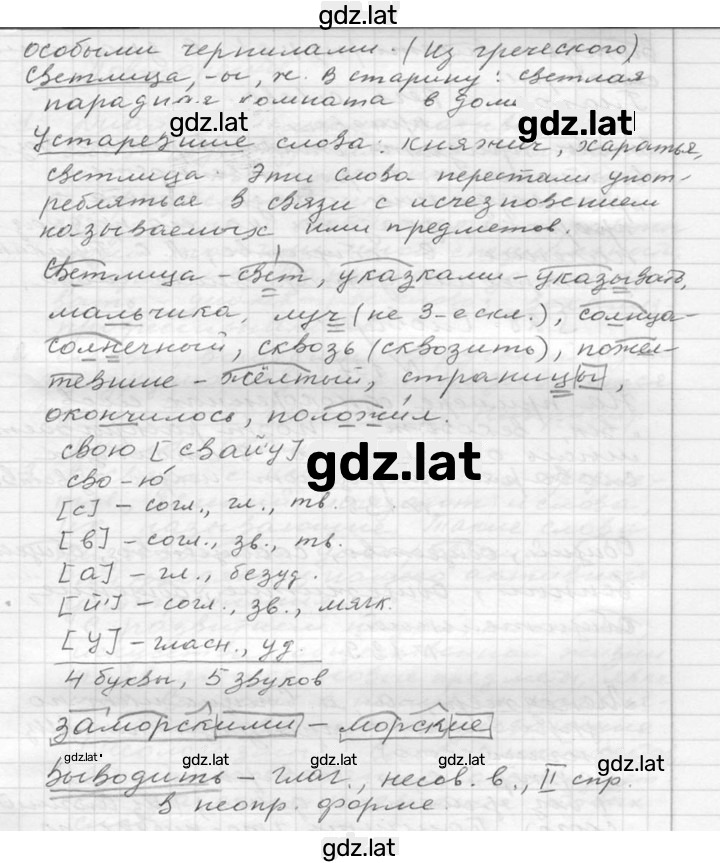 gdz.lat
особыми чернилами. (Из греческого)
Светлица, -ы, ж. В старину: светлая
парадная комната в доме
gdz.lat gdz.lat
Устаревшие слова: княжич, харатья,
светлица. Эти слова перестали упот-
ребляться в связи с исчезновением
называемых ими предметов.
Светлица - свет, указками - указывать,
мальчика, луч (не 3-е скл.), солнца -
солнечный, сквозь (сквозить), пожел-
тевшие - жёлтый, страницы,
окончилось, положил.
свою [свайу]
gdz.lat
сво-ю
[с] - согл., гл., тв.
[в] - согл., зв., тв.
[а] - гл., безуд.
[й'] - согл., зв., мягк.
[у] - гласн., уд.
4 буквы, 5 звуков
заморскими - морские
gdz.lat gdz.lat gdz.lat gdz.lat
Выводить - глаг., несов. в., II спр.
в неопр. форме
gdz.lat